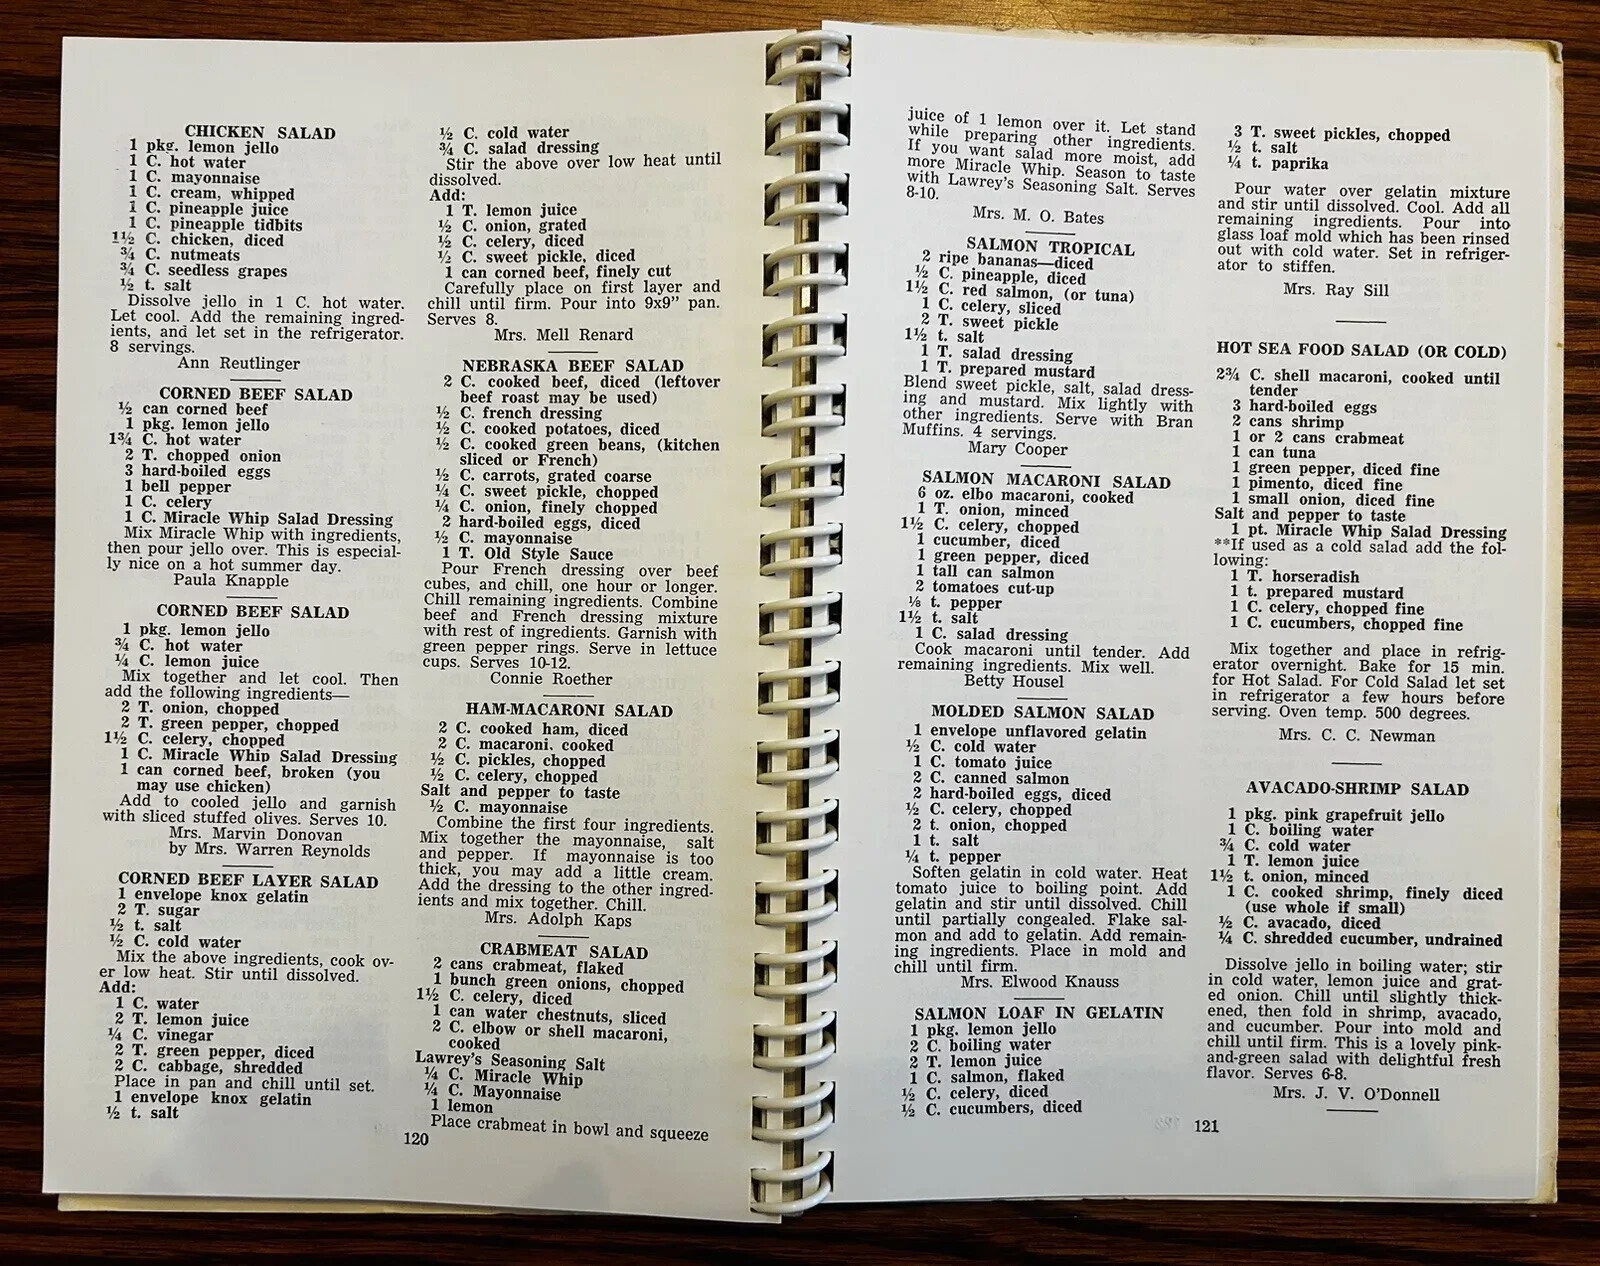 CHICKEN SALAD
1 pkg. lemon jello
1 C. hot water
1 C. mayonnaise
1 C. cream, whipped
1 C. pineapple juice
1 C. pineapple tidbits
1½ C. chicken, diced
¾ C. nutmeats
¾ C. seedless grapes
½ t. salt
Dissolve jello in 1 C. hot water.
Let cool. Add the remaining ingred-
ients, and let set in the refrigerator.
8 servings.
Ann Reutlinger
CORNED BEEF SALAD
½ can corned beef
1 pkg. lemon jello
1¾ C. hot water
2 T. chopped onion
3 hard-boiled eggs
1 bell pepper
1 C. celery
1 C. Miracle Whip Salad Dressing
Mix Miracle Whip with ingredients,
then pour jello over. This is especial-
ly nice on a hot summer day.
Paula Knapple
CORNED BEEF SALAD
1 pkg. lemon jello
¾ C. hot water
¼ C. lemon juice
Mix together and let cool. Then
add the following ingredients—
2 T. onion, chopped
2 T. green pepper, chopped
1½ C. celery, chopped
1 C. Miracle Whip Salad Dressing
1 can corned beef, broken (you
may use chicken)
Add to cooled jello and garnish
with sliced stuffed olives. Serves 10.
Mrs. Marvin Donovan
by Mrs. Warren Reynolds
CORNED BEEF LAYER SALAD
1 envelope knox gelatin
2 T. sugar
½ t. salt
½ C. cold water
Mix the above ingredients, cook ov-
er low heat. Stir until dissolved.
Add:
1 C. water
2 T. lemon juice
¼ C. vinegar
2 T. green pepper, diced
2 C. cabbage, shredded
Place in pan and chill until set.
1 envelope knox gelatin
½ t. salt
½ C. cold water
¾ C. salad dressing
Stir the above over low heat until
dissolved.
Add:
1 T. lemon juice
½ C. onion, grated
½ C. celery, diced
½ C. sweet pickle, diced
1 can corned beef, finely cut
Carefully place on first layer and
chill until firm. Pour into 9x9" pan.
Serves 8.
Mrs. Mell Renard
NEBRASKA BEEF SALAD
2 C. cooked beef, diced (leftover
beef roast may be used)
½ C. french dressing
½ C. cooked potatoes, diced
½ C. cooked green beans, (kitchen
sliced or French)
½ C. carrots, grated coarse
¼ C. sweet pickle, chopped
¼ C. onion, finely chopped
2 hard-boiled eggs, diced
½ C. mayonnaise
1 T. Old Style Sauce
Pour French dressing over beef
cubes, and chill, one hour or longer.
Chill remaining ingredients. Combine
beef and French dressing mixture
with rest of ingredients. Garnish with
green pepper rings. Serve in lettuce
cups. Serves 10-12.
Connie Roether
HAM-MACARONI SALAD
2 C. cooked ham, diced
2 C. macaroni, cooked
½ C. pickles, chopped
½ C. celery, chopped
Salt and pepper to taste
½ C. mayonnaise
Combine the first four ingredients.
Mix together the mayonnaise, salt
and pepper. If mayonnaise is too
thick, you may add a little cream.
Add the dressing to the other ingred-
ients and mix together. Chill.
Mrs. Adolph Kaps
CRABMEAT SALAD
2 cans crabmeat, flaked
1 bunch green onions, chopped
1½ C. celery, diced
1 can water chestnuts, sliced
2 C. elbow or shell macaroni,
cooked
Lawrey's Seasoning Salt
¼ C. Miracle Whip
¼ C. Mayonnaise
1 lemon
Place crabmeat in bowl and squeeze
120
juice of 1 lemon over it. Let stand
while preparing other ingredients.
If you want salad more moist, add
more Miracle Whip. Season to taste
with Lawrey's Seasoning Salt. Serves
8-10.
Mrs. M. O. Bates
SALMON TROPICAL
2 ripe bananas—diced
½ C. pineapple, diced
1½ C. red salmon, (or tuna)
1 C. celery, sliced
2 T. sweet pickle
1½ t. salt
1 T. salad dressing
1 T. prepared mustard
Blend sweet pickle, salt, salad dress-
ing and mustard. Mix lightly with
other ingredients. Serve with Bran
Muffins. 4 servings.
Mary Cooper
SALMON MACARONI SALAD
6 oz. elbo macaroni, cooked
1 T. onion, minced
1½ C. celery, chopped
1 cucumber, diced
1 green pepper, diced
1 tall can salmon
2 tomatoes cut-up
⅛ t. pepper
1½ t. salt
1 C. salad dressing
Cook macaroni until tender. Add
remaining ingredients. Mix well.
Betty Housel
MOLDED SALMON SALAD
1 envelope unflavored gelatin
½ C. cold water
1 C. tomato juice
2 C. canned salmon
2 hard-boiled eggs, diced
½ C. celery, chopped
2 t. onion, chopped
1 t. salt
¼ t. pepper
Soften gelatin in cold water. Heat
tomato juice to boiling point. Add
gelatin and stir until dissolved. Chill
until partially congealed. Flake sal-
mon and add to gelatin. Add remain-
ing ingredients. Place in mold and
chill until firm.
Mrs. Elwood Knauss
SALMON LOAF IN GELATIN
1 pkg. lemon jello
2 C. boiling water
2 T. lemon juice
1 C. salmon, flaked
½ C. celery, diced
½ C. cucumbers, diced
3 T. sweet pickles, chopped
½ t. salt
¼ t. paprika
Pour water over gelatin mixture
and stir until dissolved. Cool. Add all
remaining ingredients. Pour into
glass loaf mold which has been rinsed
out with cold water. Set in refriger-
ator to stiffen.
Mrs. Ray Sill
HOT SEA FOOD SALAD (OR COLD)
2¾ C. shell macaroni, cooked until
tender
3 hard-boiled eggs
2 cans shrimp
1 or 2 cans crabmeat
1 can tuna
1 green pepper, diced fine
1 pimento, diced fine
1 small onion, diced fine
Salt and pepper to taste
1 pt. Miracle Whip Salad Dressing
**If used as a cold salad add the fol-
lowing:
1 T. horseradish
1 t. prepared mustard
1 C. celery, chopped fine
1 C. cucumbers, chopped fine
Mix together and place in refrig-
erator overnight. Bake for 15 min.
for Hot Salad. For Cold Salad let set
in refrigerator a few hours before
serving. Oven temp. 500 degrees.
Mrs. C. C. Newman
AVACADO-SHRIMP SALAD
1 pkg. pink grapefruit jello
1 C. boiling water
¾ C. cold water
1 T. lemon juice
1½ t. onion, minced
1 C. cooked shrimp, finely diced
(use whole if small)
½ C. avacado, diced
¼ C. shredded cucumber, undrained
Dissolve jello in boiling water; stir
in cold water, lemon juice and grat-
ed onion. Chill until slightly thick-
ened, then fold in shrimp, avacado,
and cucumber. Pour into mold and
chill until firm. This is a lovely pink-
and-green salad with delightful fresh
flavor. Serves 6-8.
Mrs. J. V. O'Donnell
121